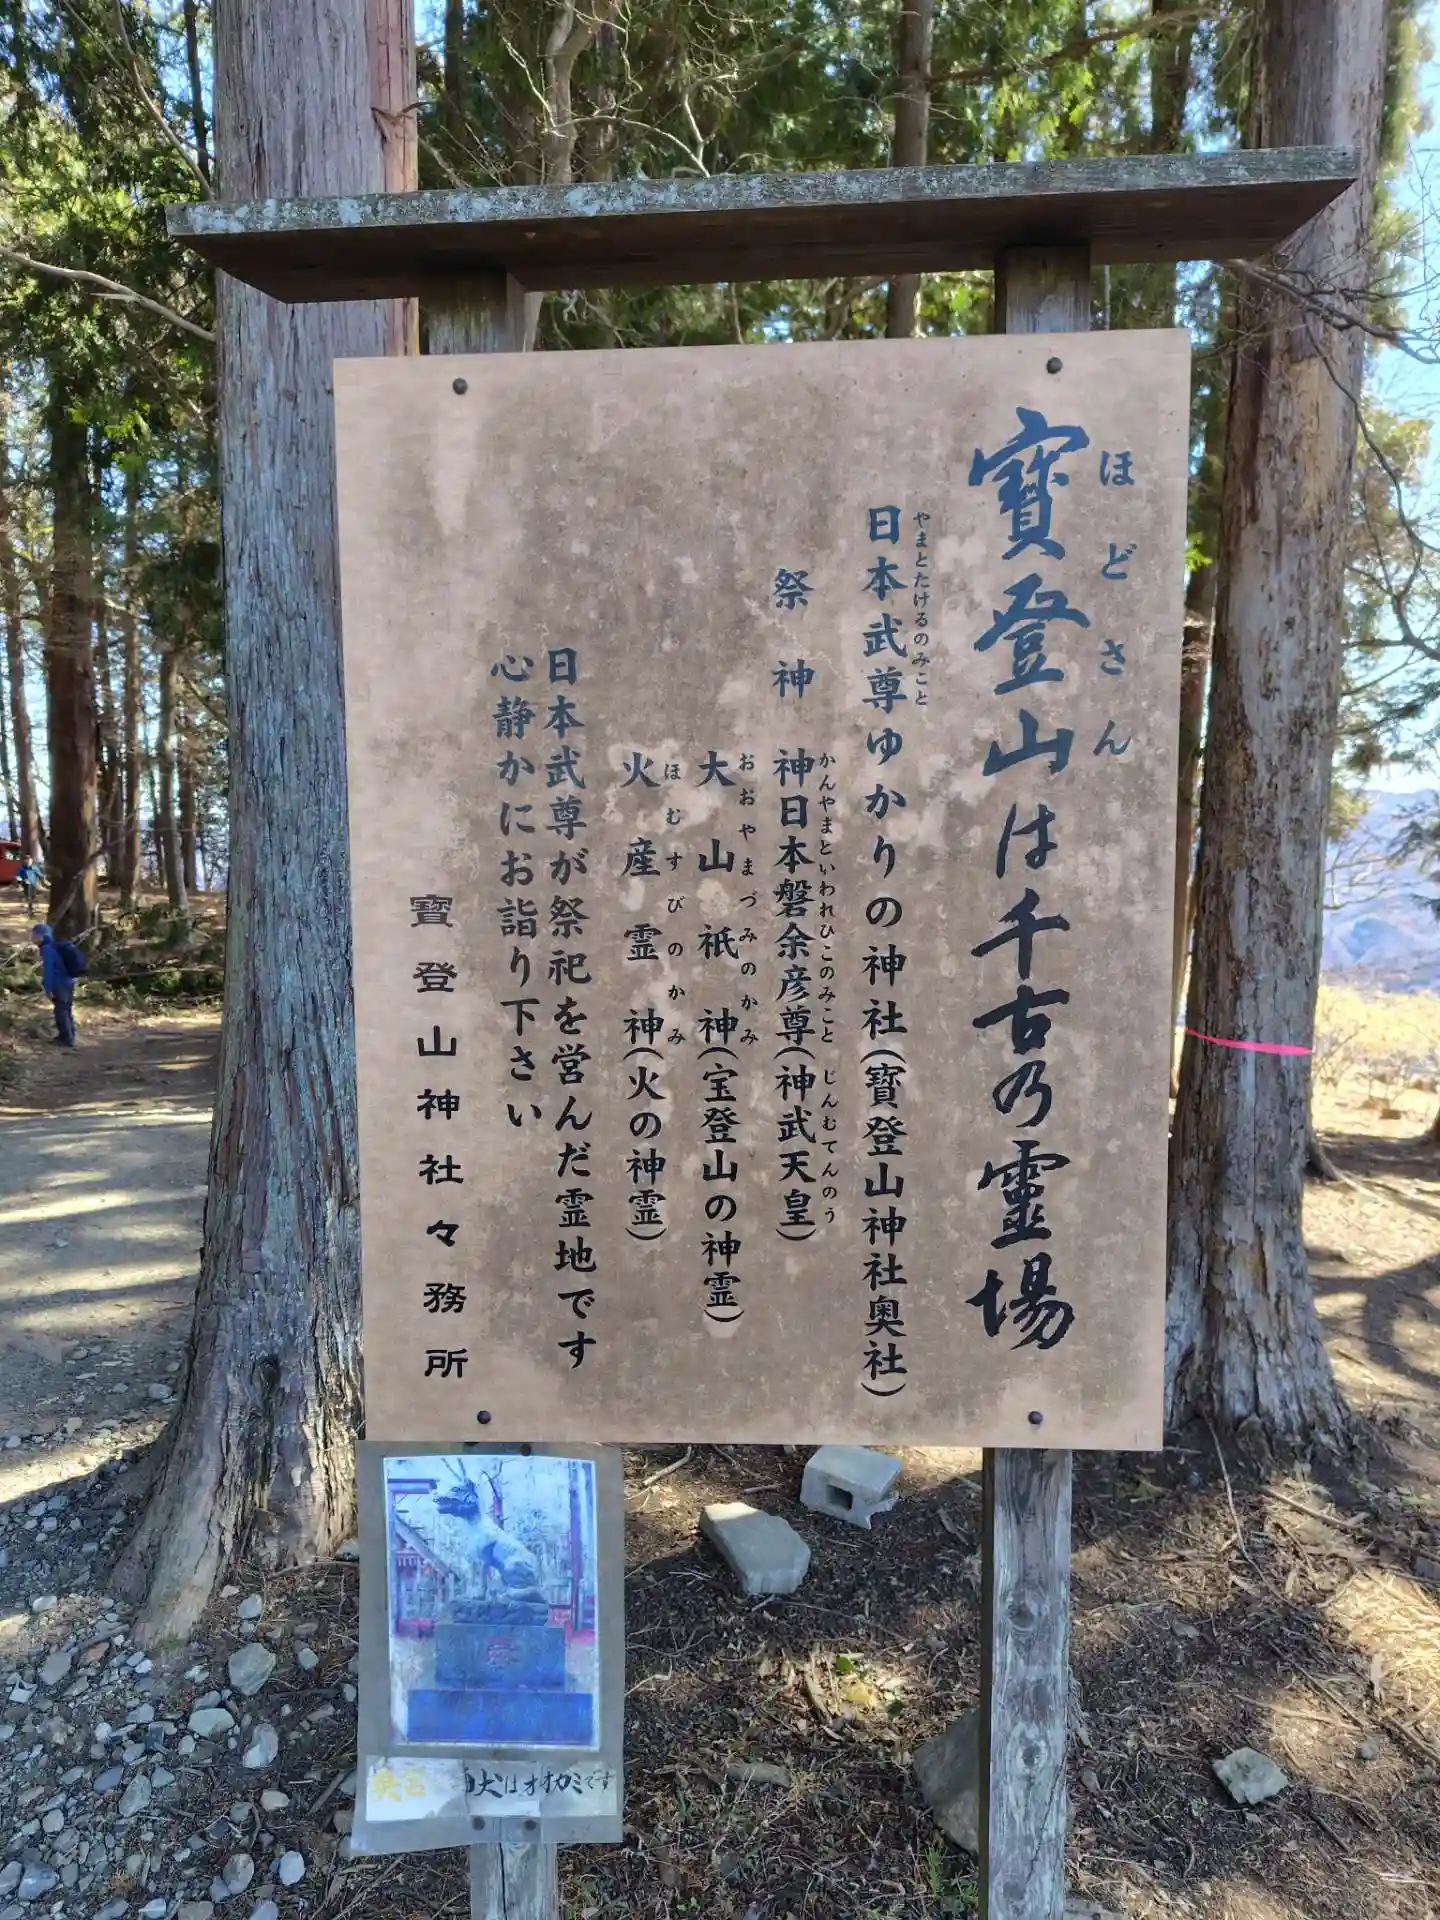 寶登山は千古乃霊場
ほどさん
日本武尊ゆかりの神社(寶登山神社奥社)
やまとたけるのみこと
祭神 神日本磐余彦尊(神武天皇)
かんやまといわれひこのみこと じんむてんのう
大山祇神(宝登山の神霊)
おおやまづみのかみ
火産霊神(火の神霊)
ほむすびのかみ
日本武尊が祭祀を営んだ霊地です
心静かにお詣り下さい
寶登山神社々務所
犬はオオカミです